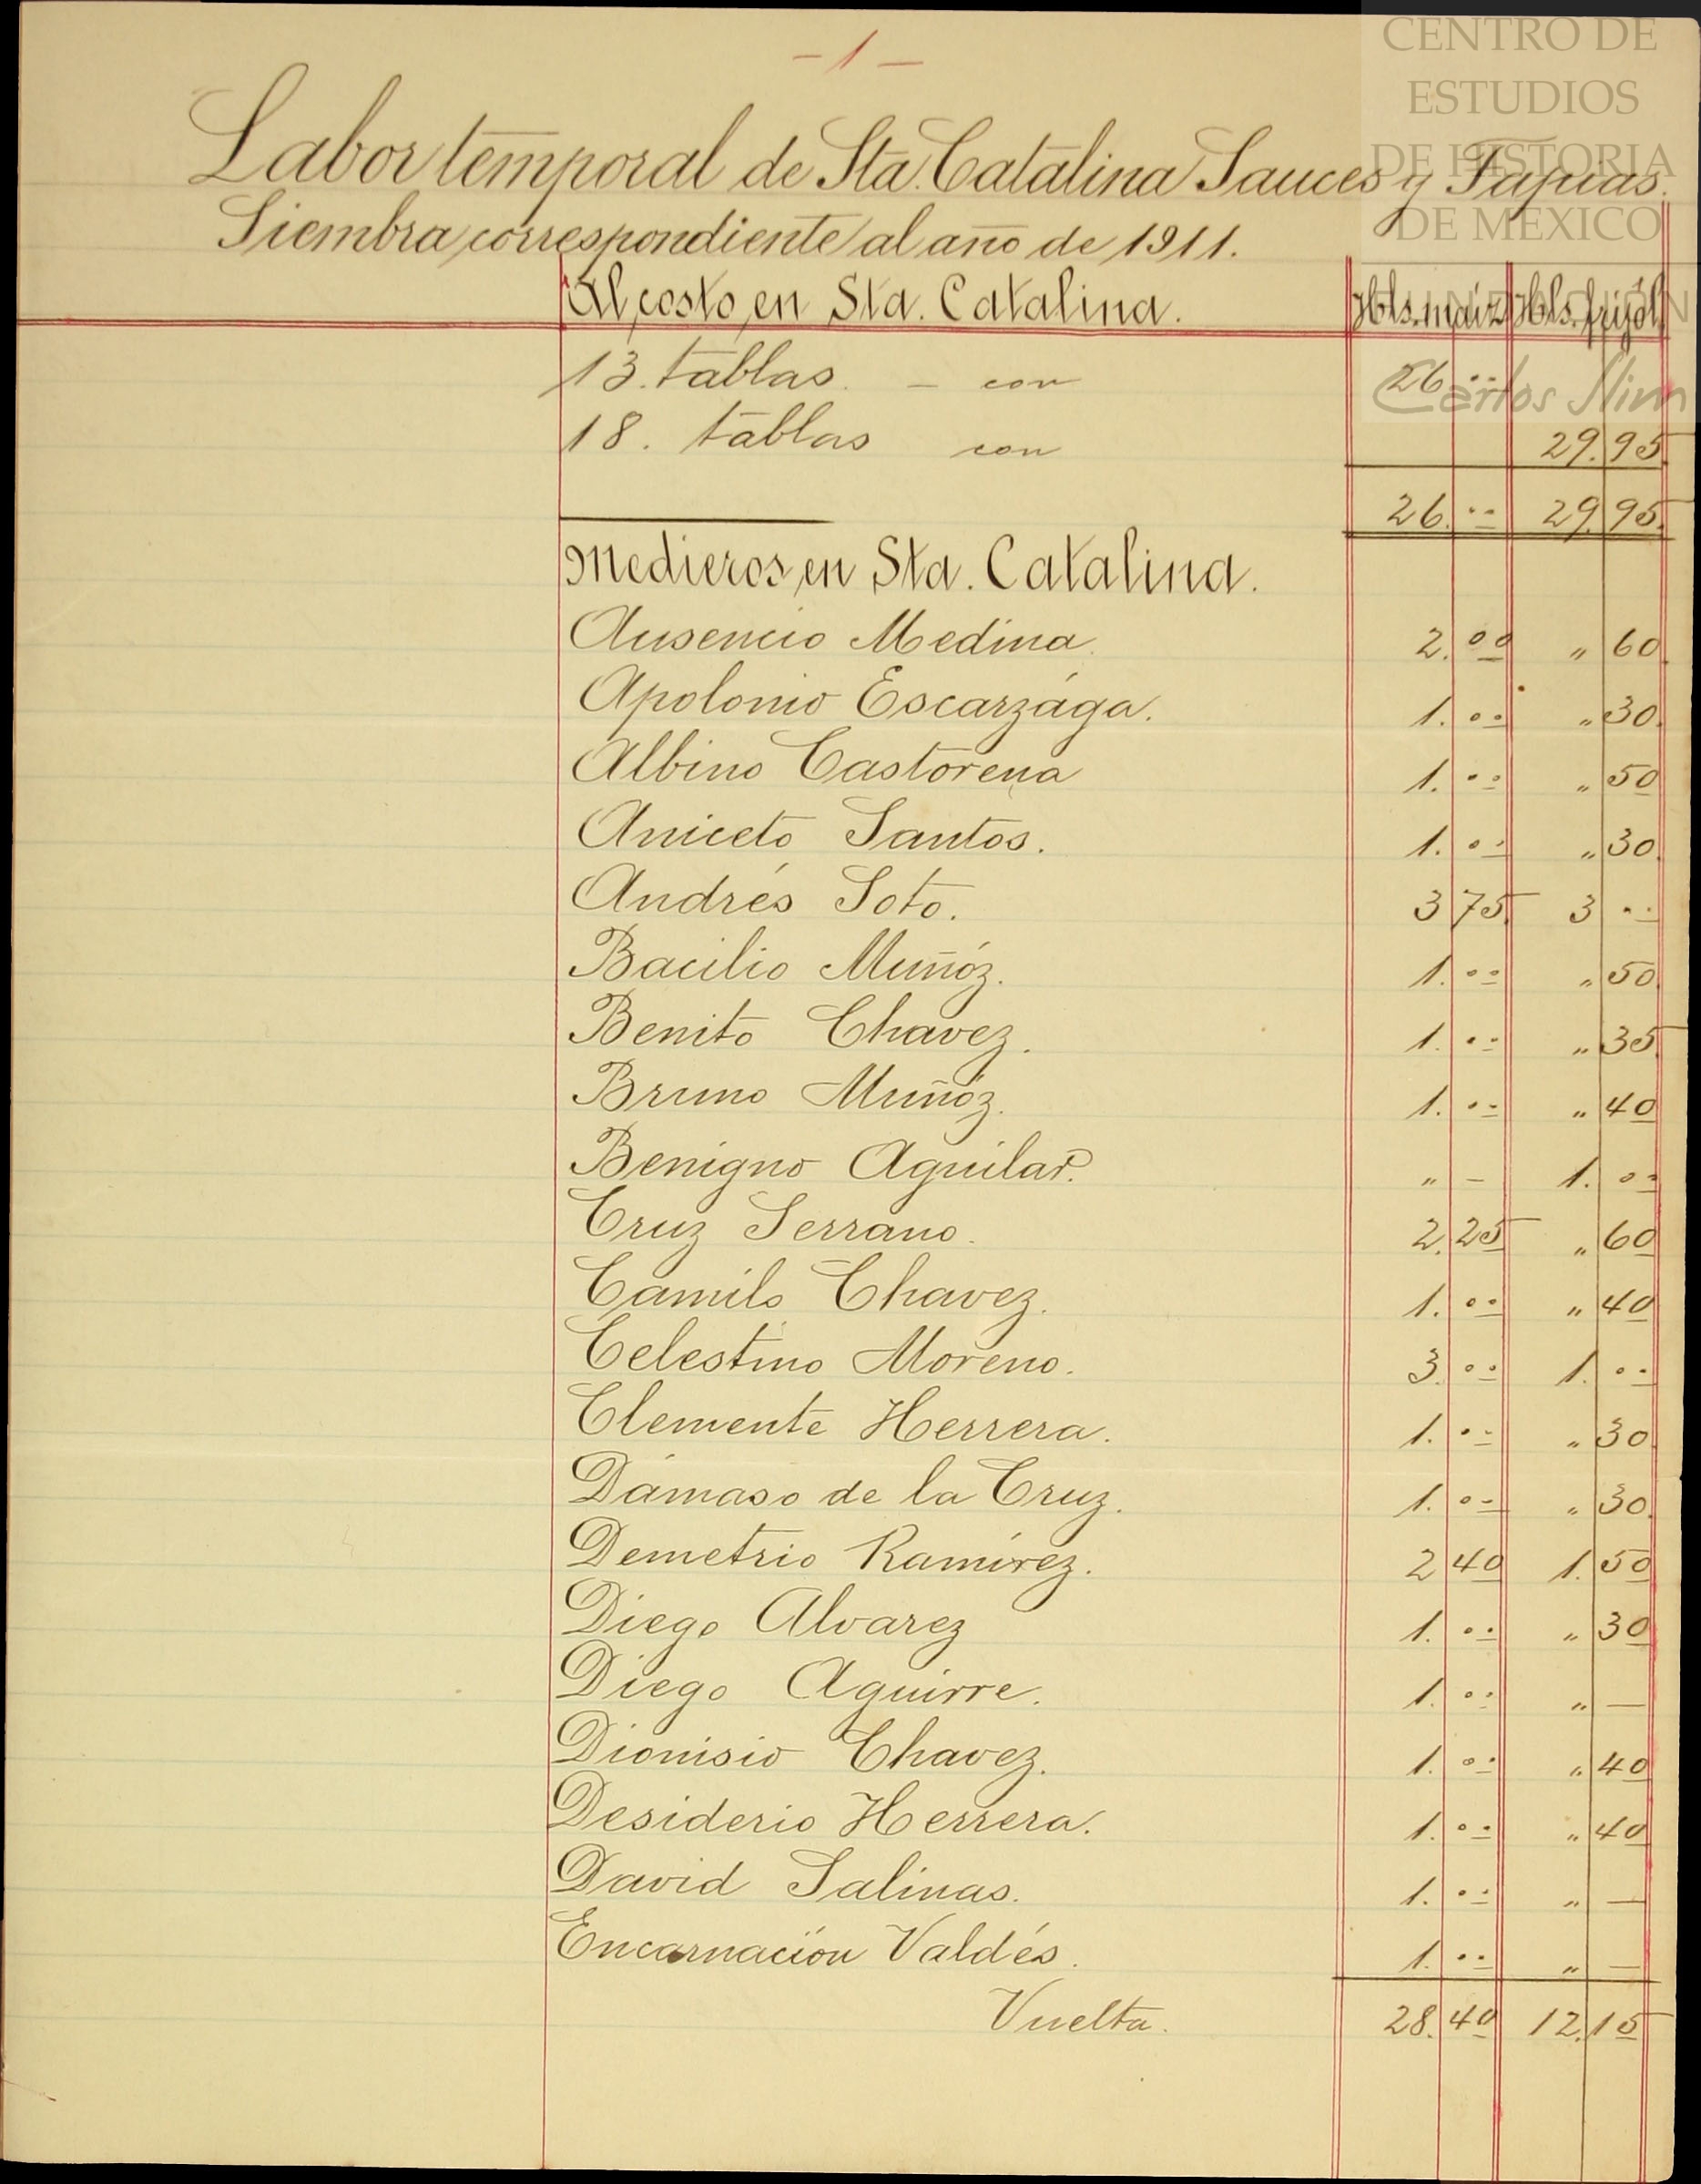 - 1 -
CENTRO DE
ESTUDIOS
DE HISTORIA
DE MEXICO
Carlos Slim
Labor temporal de Sta. Catalina Sauces y Tapias.
Siembra correspondiente al año de 1911.
Al costo en Sta. Catalina. Hbls. maiz Hbls. frijol
13. tablas. - con 26 ..
18. tablas con 29.95
26. .. 29.95
Medieros en Sta. Catalina.
Ausencio Medina. 2. 00 " 60
Apolonio Escarzága. 1. 00 " 30.
Albino Castorena 1. 00 " 50
Aniceto Santos. 1. 00 " 30.
Andrés Soto. 3 75. 3 ..
Bacilio Muñóz. 1. 00 " 50
Benito Chavez. 1. 00 " 35
Bruno Muñóz. 1. 00 " 40
Benigno Aguilar. " - 1. 00
Cruz Serrano. 2. 25 " 60
Camilo Chavez. 1. 00 " 40
Celestino Moreno. 3. 00 1. 00
Clemente Herrera. 1. 00 " 30
Dámaso de la Cruz. 1. 00 " 30.
Demetrio Ramírez. 2 40 1. 50
Diego Alvarez 1. 00 " 30
Diego Aguirre. 1. 00 " —
Dionisio Chavez. 1. 00 " 40
Desiderio Herrera. 1. 00 " 40
David Salinas. 1. 00 " —
Encarnación Valdés. 1. 00 " —
Vuelta. 28. 40 12. 15